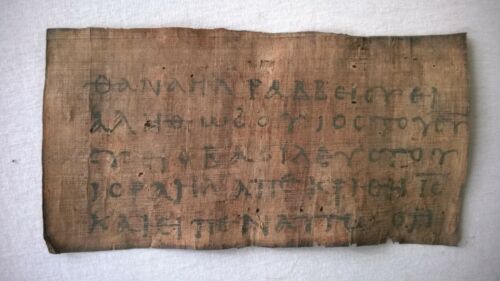 ΘΑΝΑΗΛΡΑΒΒΕΙϹΥΕΙ
ΑΛΗΘΩϹΟΥΙΟϹΤΟΥΘ̅Υ̅
ϹΥΕΙΟΒΑϹΙΛΕΥϹΤΟΥ
ΙϹΡΑΗΛΑΠΕΚΡΙΘΗΙ̅Ϲ̅
ΚΑΙΕΙΠΕΝΑΥΤΩΟΤΙ